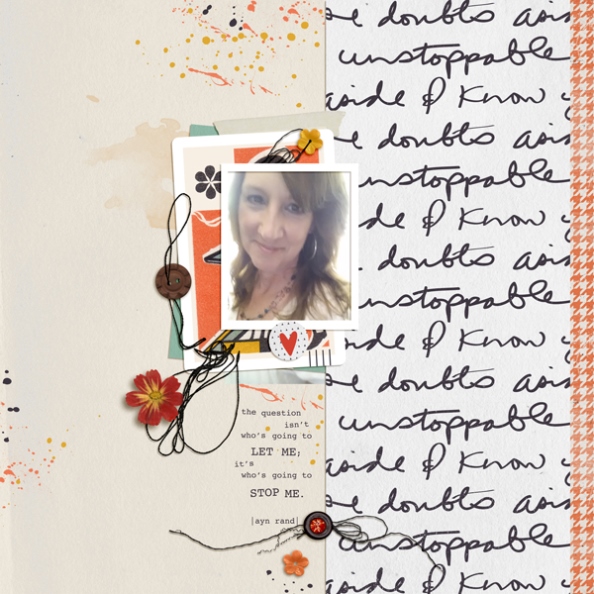 the question
isn't
who's going to
LET ME;
it's
who's going to
STOP ME.
|ayn rand|
doubts
unstoppable
aside & know
doubts
unstoppable
& know
doubts
unstoppable
& know
doubts
unstoppable
aside & know
doubts
unstoppable
aside & know